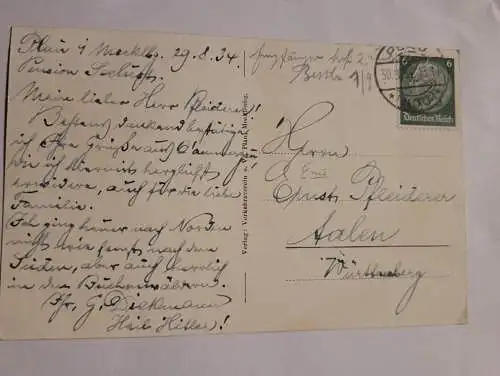 Plau i Mecklbg. 29.8.34.
Pension Seelust
Mein lieber Herr Pfleiderer!
Bestens dankend bestätige
ich Ihre Grüße aus
wie ich hiermit herzlichst
erwidere, auch für die liebe
Familie.
Ich ging heuer nach Norden
nicht wie sonst nach dem
Süden, aber auch herrlich
in den Buchenwäldern.
Ihr G. Dieckmann
Heil Hitler!
Verlag: Verkehrsverein Plau, Mecklenbg.
6
Deutsches Reich
Herrn
Ernst Pfleiderer
Aalen
Württemberg